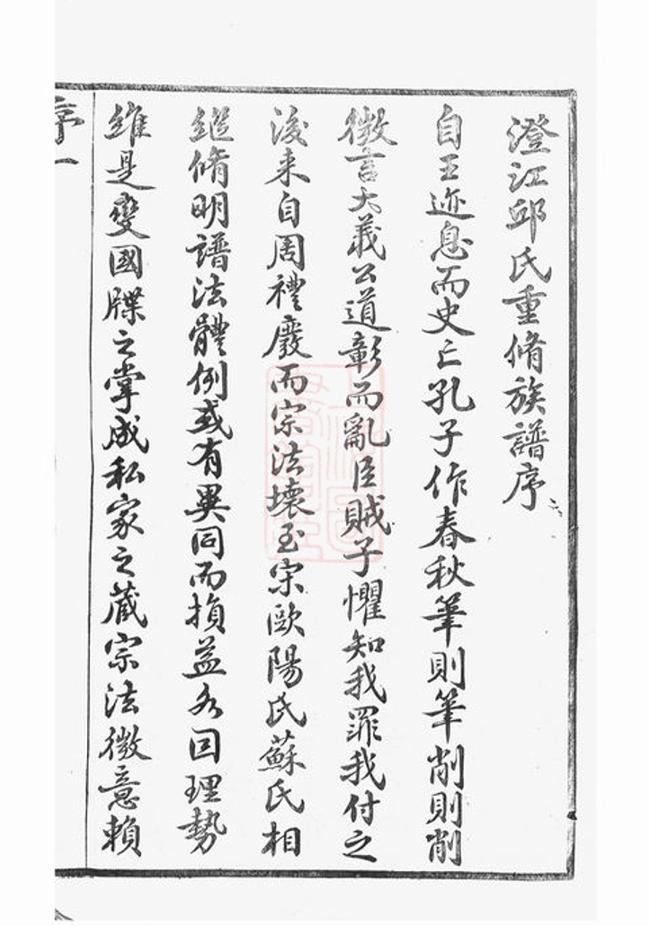 澄江邱氏重脩族譜序
自王迹息而史亡孔子作春秋筆則筆削則削
微言大義公道彰而亂臣賊子懼知我罪我付之
後来自周禮廢而宗法壞至宋歐陽氏蘇氏相
繼脩明譜法體例或有異同而損益各因理勢
維是變國牒之掌成私家之藏宗法微意賴
序一